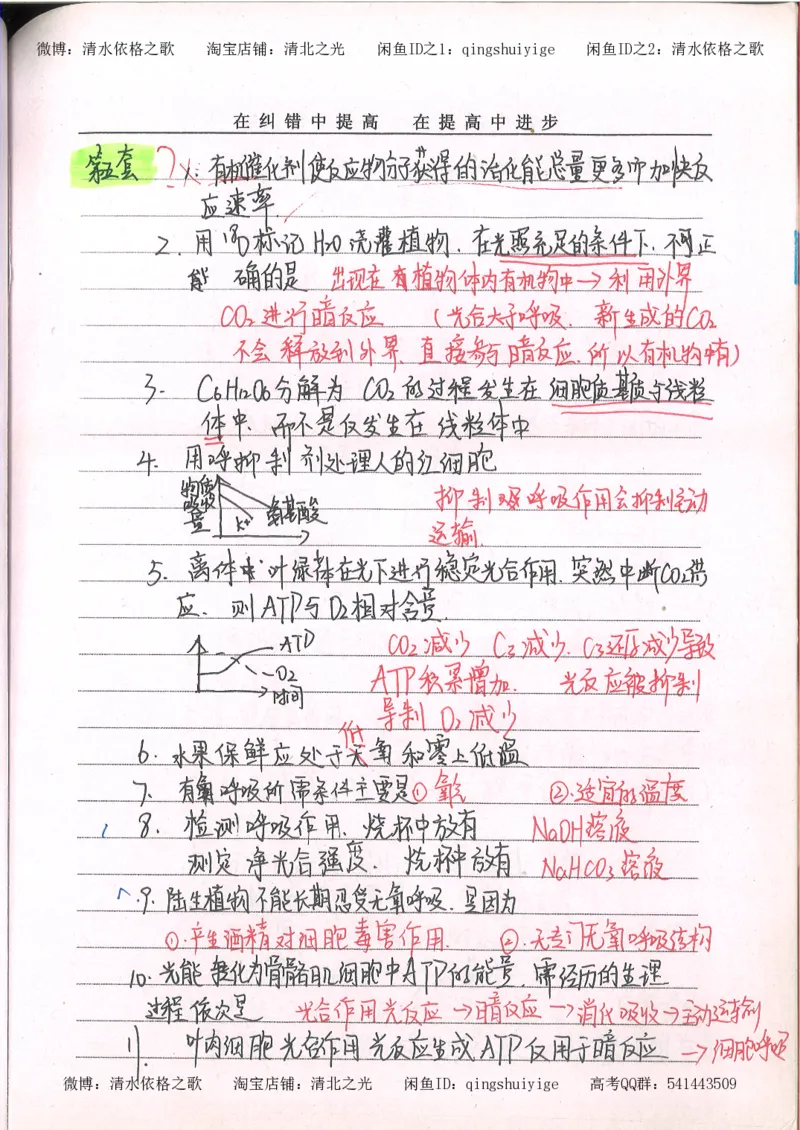 微博：清水依格之歌 淘宝店铺：清北之光 闲鱼ID之1：qingshuiyige 闲鱼ID之2：清水依格之歌
在纠错中提高 在提高中进步
第五套 ?× 1. 有机催化剂使反应物分子获得的活化能总量更多而加快反
应速率
2. 用¹⁸O标记H₂O浇灌植物．在光照充足的条件下．不可正
能 确的是 出现在有植物体内有机物中→利用外界
CO₂进行暗反应 （光合大于呼吸．新生成的CO₂
不会释放到外界．直接参与暗反应．所以有机物中有）
3. C₆H₁₂O₆分解为CO₂的过程发生在细胞质基质与线粒
体中．而不是仅发生在线粒体中
4. 用呼抑制剂处理人的红细胞
物质吸收量 K⁺ 氨基酸 抑制 呼吸作用会抑制主动
运输．
5. 离体 叶绿体在光下进行稳定光合作用．突然中断CO₂供
应．则ATP与O₂相对含量．
ATP CO₂减少 C₃减少．C₃还原减少导致
O₂ ATP积累增加． 光反应被抑制
时间
导制O₂减少
低
6. 水果保鲜应处于无氧和零上低温
7. 有氧呼吸所需条件主要是①氧气 ②.适宜的温度
8. 检测呼吸作用．烧杯中放有 NaOH溶液
测定净光合强度．烧杯中放有 NaHCO₃溶液
9. 陆生植物不能长期忍受无氧呼吸．是因为
①.产生酒精对细胞毒害作用． ②.无专门无氧呼吸结构
10. 光能转化为骨骼肌细胞中ATP的能量．需经历的生理
过程依次是 光合作用光反应→暗反应→消化吸收→主动运输
11. 叶肉细胞光合作用光反应生成ATP仅用于暗反应 →细胞呼吸
微博：清水依格之歌 淘宝店铺：清北之光 闲鱼ID：qingshuiyige 高考QQ群：541443509